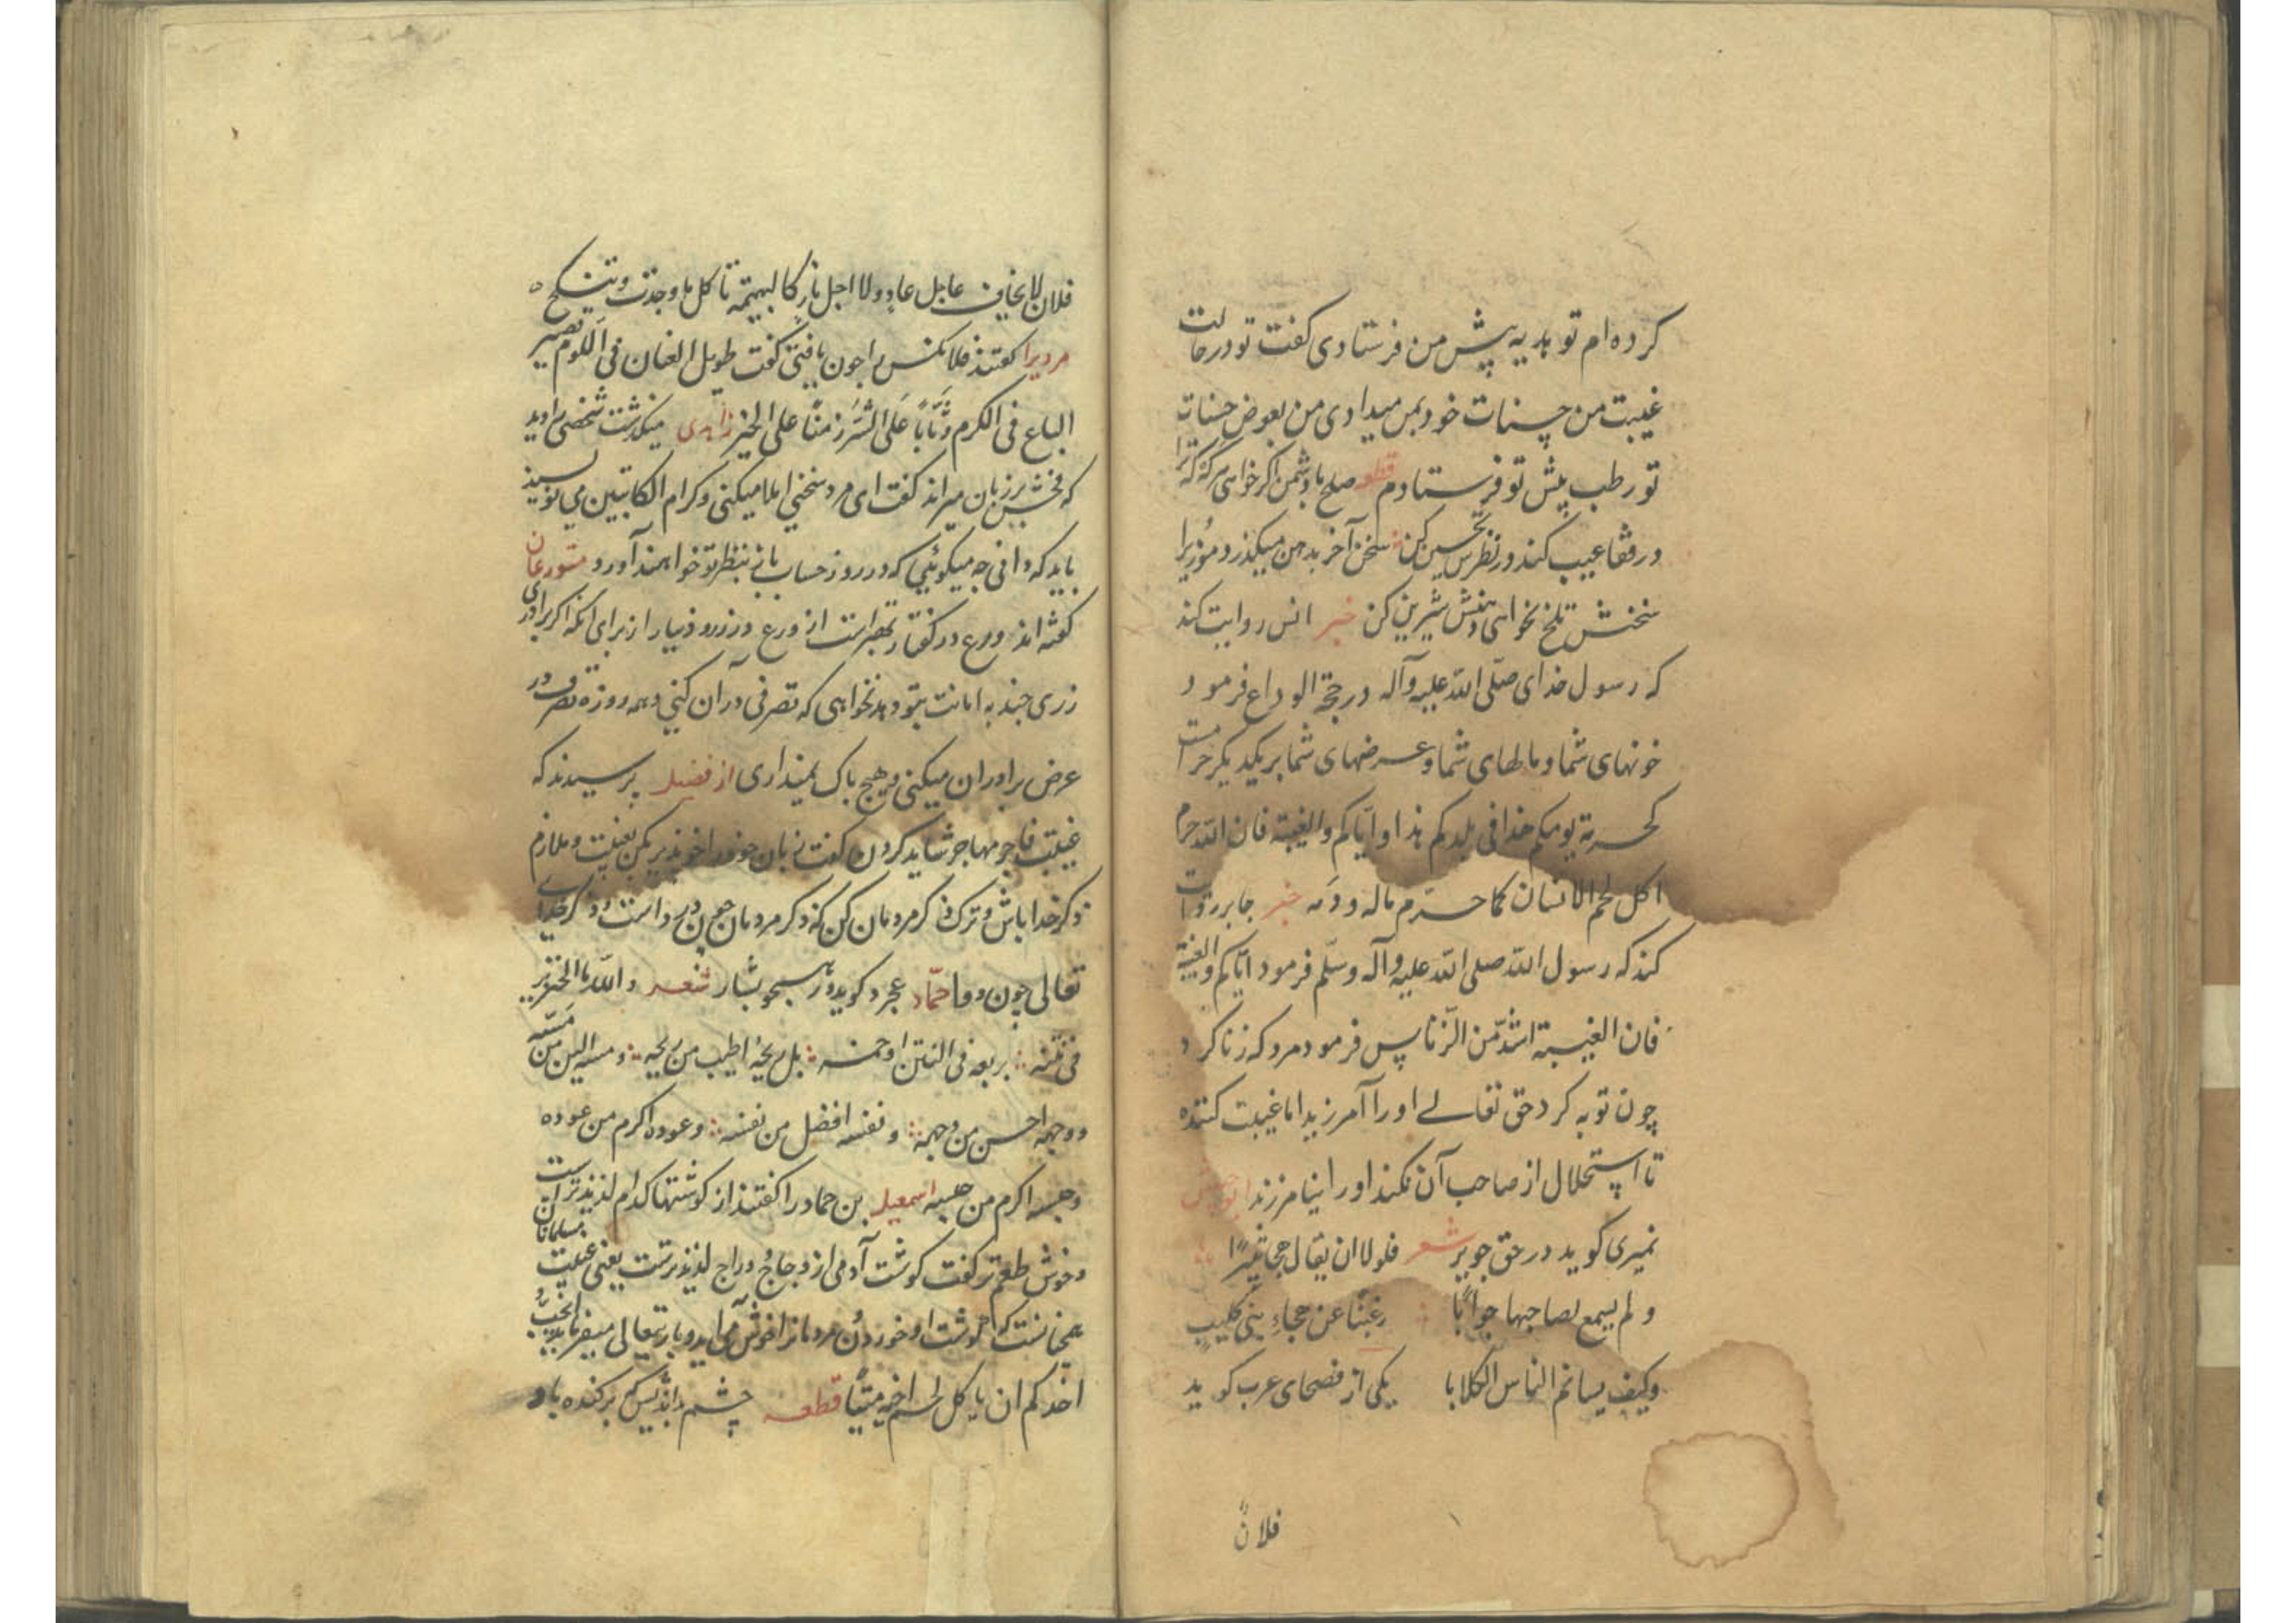 کرده ام تو هدیه پیش من فرستادی کفت تو در حالت
غیبت من حسنات خود بمن میدادی من بعوض حسنات
تو رطب پیش تو فرستادم قطعه صلح با دشمن اکر خواهی هرکه که ترا
در قفا عیب کند در نظرش تحسین کن سخن آخر بدهن میکذرد موذیرا
سخنش تلخ نخواهی دهنش شیرین کن خبر انس روایت کند
که رسول خدای صلّی اللّه علیه وآله در حجة الوداع فرمود
خونهای شما و مالهای شما و عرضهای شما بر یکدیکر حرامست
کحرمة یومکم هذا فی بلدکم هذا و ایّاکم والغیبة فان اللّه حرم
اکل لحم الانسان کما حرّم ماله و دمه خبر جابر روایت
کند که رسول اللّه صلی اللّه علیه وآله وسلّم فرمود ایّاکم والغیبة
فان الغیبة اشدّ من الزنا پس فرمود مرد که زنا کرد
چون توبه کرد حق تعالی او را آمرزید اما غیبت کننده
تا استحلال از صاحب آن نکند او را نیامرزند
نمیری کوید در حق جویر شعر فلولا ان یقال هجا نمیرًا
و لم یسمع لصاحبها جوابًا رغبنا عن هجاء بنی کلیب
وکیف یسائم الناس الکلابا یکی از فصحای عرب کوید
فلانٌ
فلان لا یخاف عاجل عار ولا اجل نار کالبهیمة تاکل ما وجدت و تنکح
مردیرا کفتند فلانکس را چون یافتی کفت طویل العنان فی اللوم قصیر
الباع فی الکرم وثّابًا علی الشّر زمنًا علی الخیر زاهدی میکذشت شخصی را دید
که فحش بر زبان میراند کفت ای مرد سخنی املا میکنی و کرام الکاتبین می نویسند
باید که دانی چه میکوئی که در روز حساب بازبنظر تو خواهند آورد متورعان
کفته اند ورع در کفتار صعبتر است از ورع در زر و دینار از برای انکه اکر برادری
زری چند به امانت بتو دهد نخواهی که تصرفی در آن کنی و همه روزه تصرف در
عرض برادران میکنی و هیچ باک نمیداری از فضیل پرسیدند که
غیبت فاجر مهاجر شاید کردن کفت زبان خود را خوپذیر مکن بغیبت و ملازم
ذکر خدا باش و ترک ذکر مردمان کن که ذکر مردمان چون درد است و ذکر خدای
تعالی چون دوا حمّاد عجرد کوید در هجو بشار شعر واللّه ما الخنزیر
فی نتنه بربعه فی النتن او خمسه بل ریحهُ اطیب من ریحه و مسه الین من مسّه
و وجهه احسن من وجهه و نفسه افضل من نفسه و عوده اکرم من عوده
و جنسه اکرم من جنسه اسمعیل بن حماد را کفتند از کوشتها کدام لذیذتر است
و خوش طعمتر کفت کوشت آدمی از دجاج و دراج لذیذترست یعنی غیبت مسلمانان
همچنانست که کوشت او خوردن مردمانرا خوش می آید و باریتعالی میفرماید ایحبّ
احدکم ان یاکل لحم اخیه میتًا قطعه چشم بداندیش برکنده باد